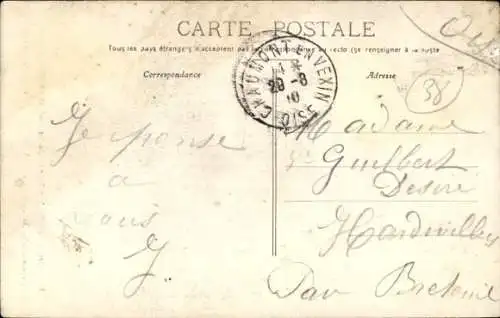 CARTE POSTALE
Tous les pays étrangers n'acceptent pas la correspondance au recto (se renseigner à la poste
Correspondance
Adresse
CHAUMONT-EN-VEXIN OISE
29 -8
10
38
Je pense
à
vous
J
Madame
Guilbert
Desire
Hardivillers
Par Breteuil
Oise